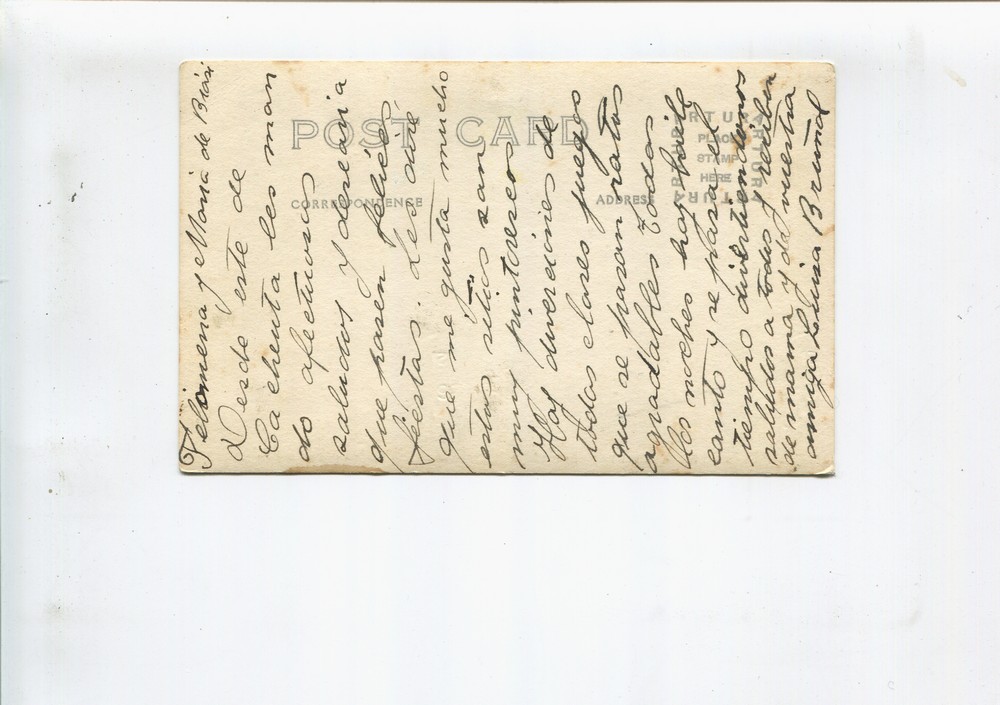 POST CARD
CORRESPONDENCE
ADDRESS
ARTURA
PLACE
STAMP
HERE
Felomena y Maria de Biasi
Desde este de
Cacheuta les man
do afectuosos
saludos y desearia
que pasen felices
fiestas. Les diré
que me gusta mucho
estos sitios son
muy pintorescos
Hay diverciones de
todas clases juegos
que se pasan ratos
agradables todas
las noches hay baile
canto y se pasa el
tiempo divirtiendonos
saludos a todos reciban
de mama y de vuestra
amiga Luisa Bruñol